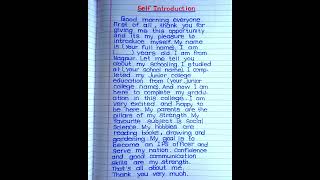 Self Introduction
Good morning everyone
First of all, thank you for
giving me this opportunity
and its my pleasure to
introduce myself. My name
is (Your full name). I am
(____) years old. I am from
Nagpur. Let me tell you
about my schooling. I studied
at (your school name). I comp-
leted my junior college
education from (your junior
college name). And now I am
here to complete my gradu-
ation in this college. I am
very excited and happy to
be here. My parents are the
pillars of my strength. My
favourite subject is Social
Science. My hobbies are
reading books, drawing and
gardening. My goal is to
Become an IPS officer and
serve my nation. Confidence
and good communication
skills are my strength.
That's all about me.
Thank you very much.